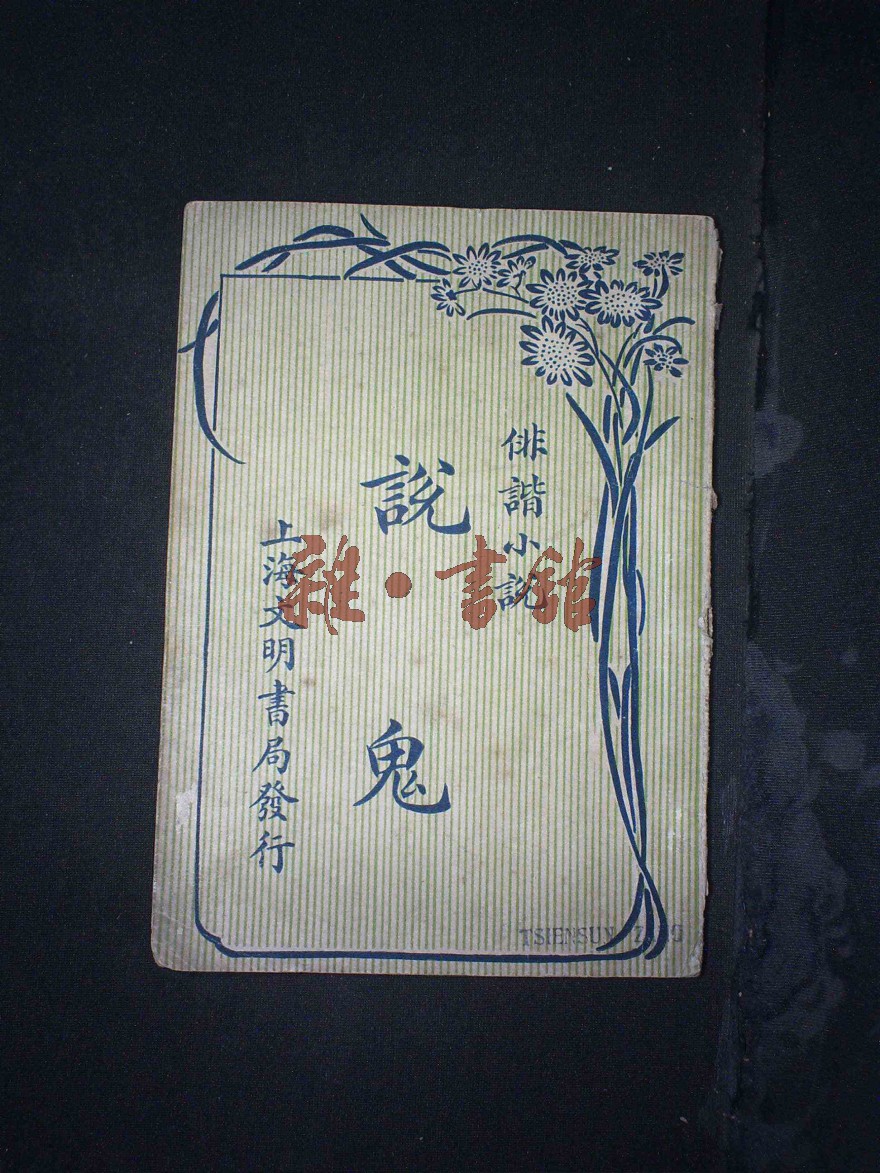 俳諧小說
說鬼
上海文明書局發行
雜·書館
TSIENSUN